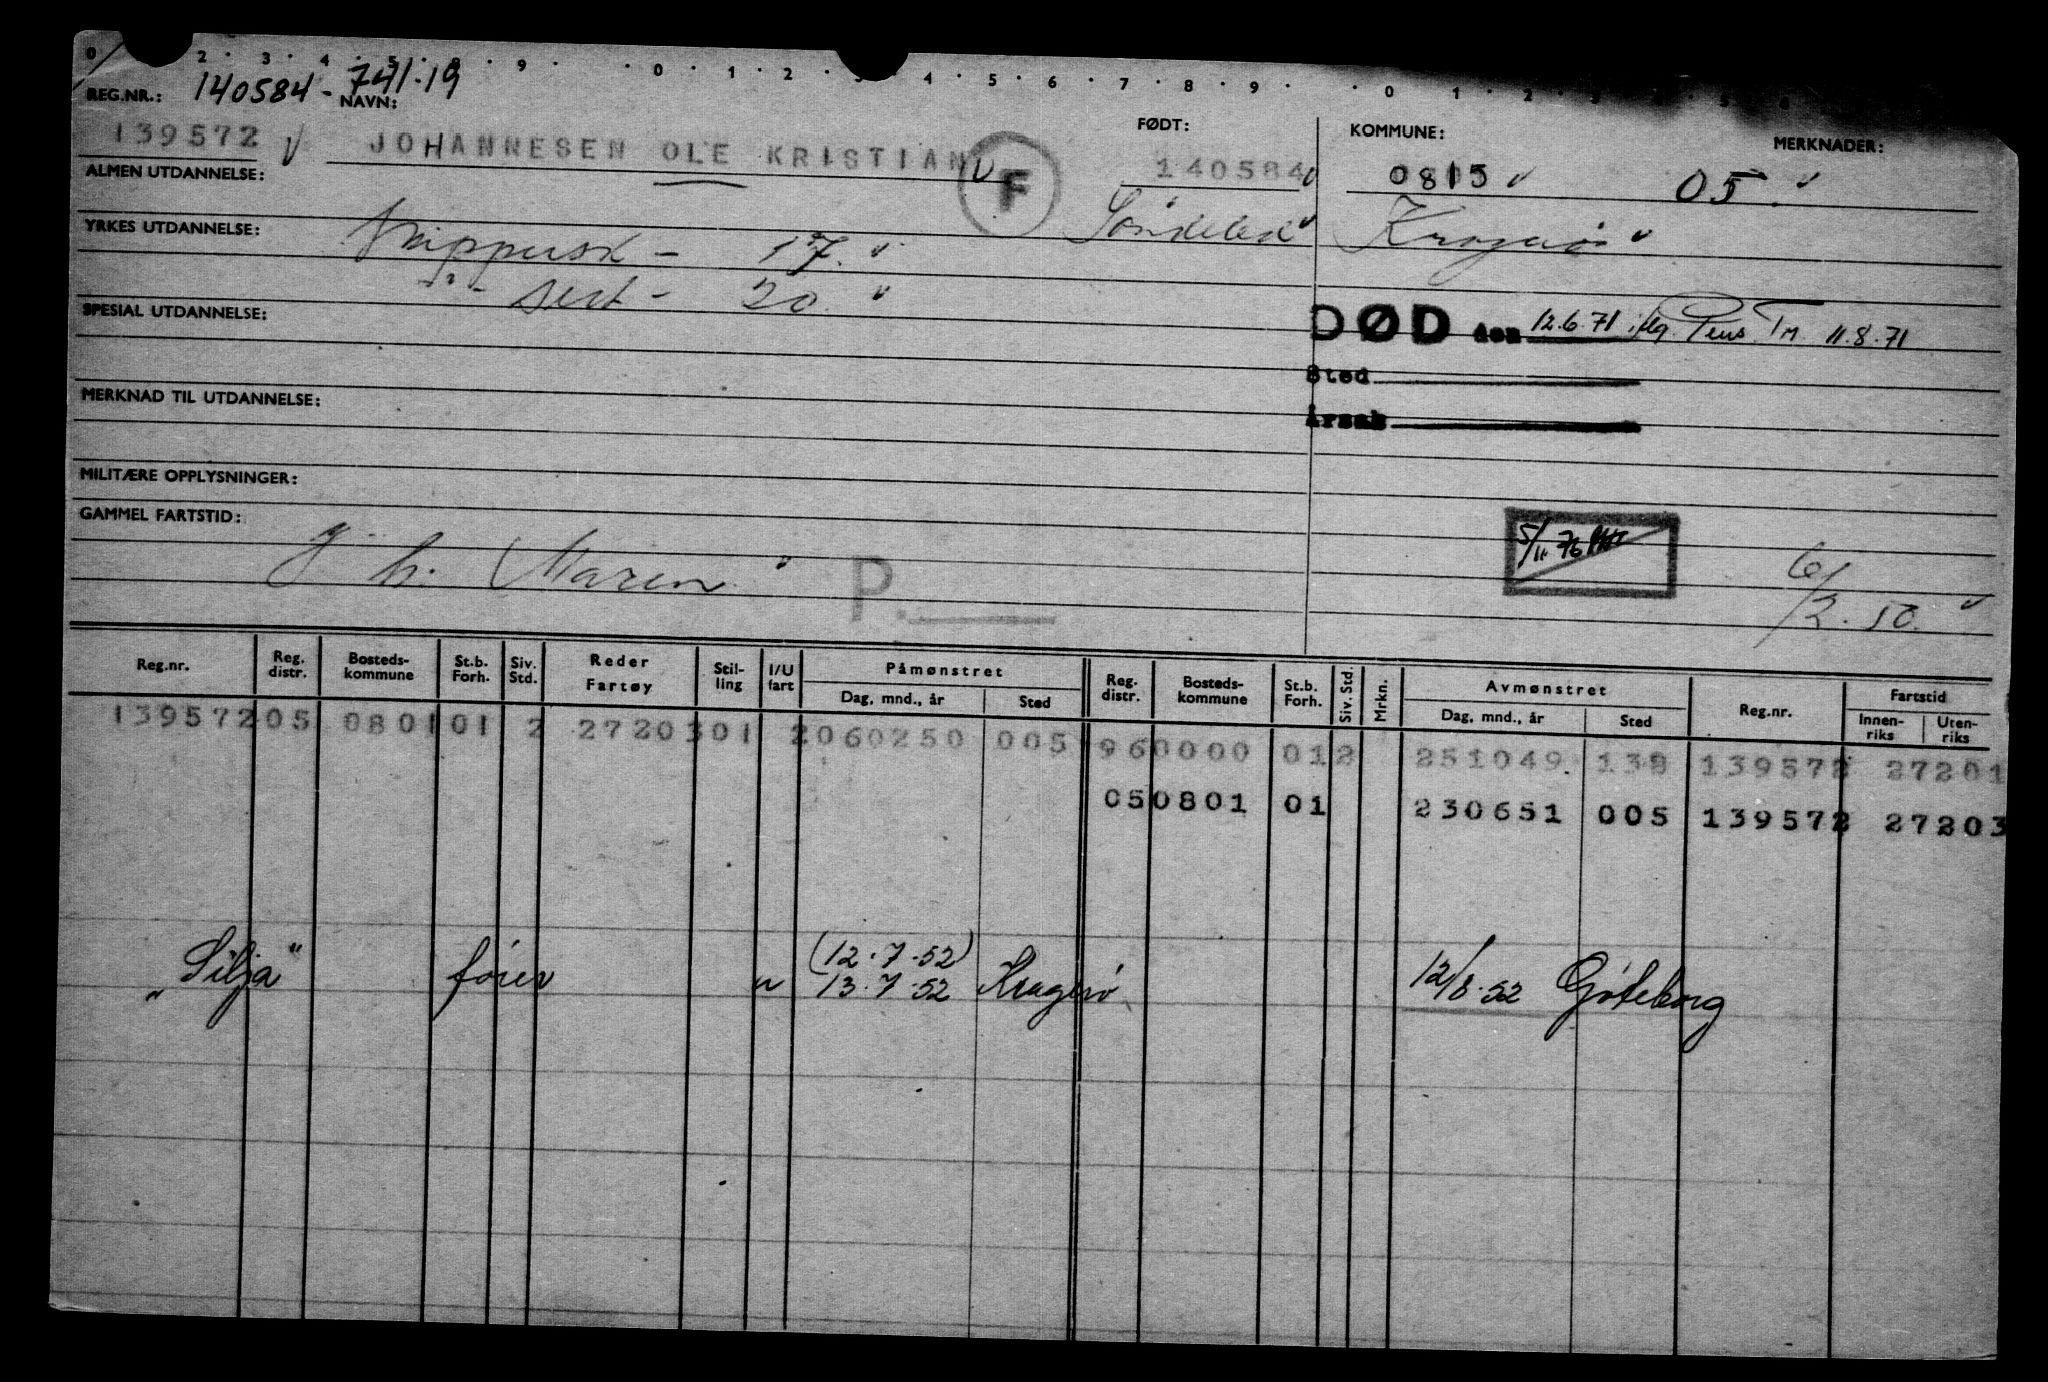 0 2 . 3 . 4 . 5 . 8 . 9 . . 0 . 1 . 2 . 3 . 4 . 5 . 6 . 7 . 8 . 9 . . 0 . 1 . 2 . 3
REG.NR.: 140584-741.19
NAVN: FØDT: KOMMUNE: MERKNADER:
139572 JOHANNESEN OLE KRISTIAN F 140584 0815 05
ALMEN UTDANNELSE:
Söndeled Kragerö
YRKES UTDANNELSE: Skippersk - 17.
-"- sert - 20.
SPESIAL UTDANNELSE:
DØD den 12.6.71 iflg. Pens. Tr. 11.8.71
Sted
Årsak
MERKNAD TIL UTDANNELSE:
MILITÆRE OPPLYSNINGER:
GAMMEL FARTSTID:
5/11 76
J. h. Maren P.
6/2.50.
Reg.nr. Reg. distr. Bosteds-kommune St.b. Forh. Siv. Std. Reder Fartøy Stil-ling I/U fart Påmønstret Dag, mnd., år Sted Reg. distr. Bosteds-kommune St.b. Forh. Siv. Std. Mrkn. Avmønstret Dag, mnd., år Sted Reg.nr. Fartstid Innen-riks Uten-riks
139572 05 0801 01 2 27203 01 2 060250 005 96 0000 01 2 251049. 138 139572 27201
05 0801 01 230651 005 139572 27203
"Silja" förer u (12.7.52)
13.7.52 Kragerö 12/8.52 Göteborg